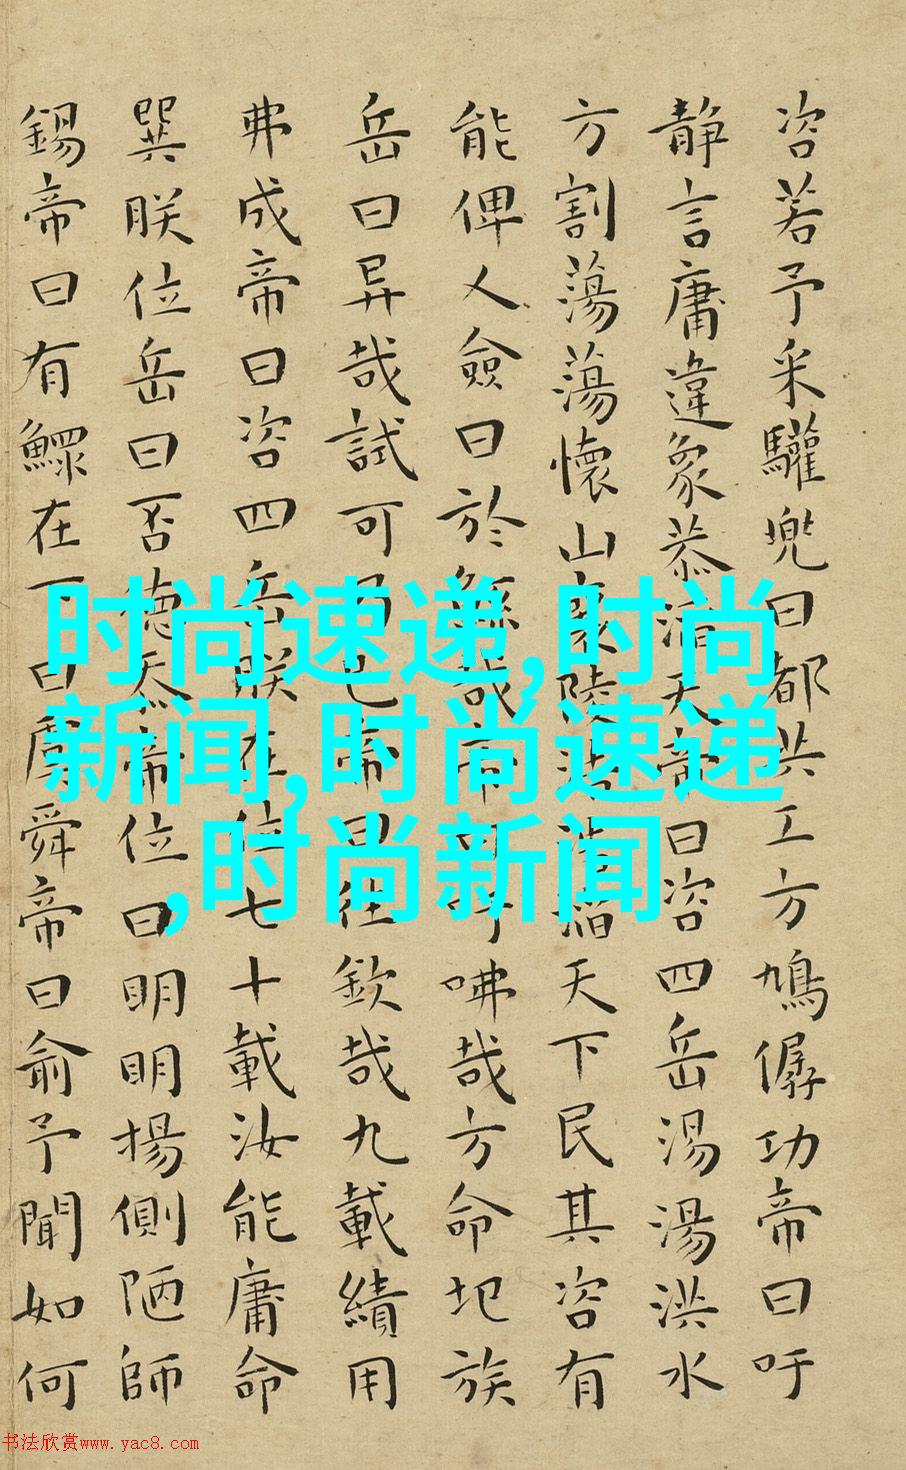 咨若予采驩兜曰都共工方鳩僝功帝曰吁
静言庸違象恭滔天帝曰咨四岳湯湯洪水
方割蕩蕩懷山襄陵浩浩滔天下民其咨有
能俾乂僉曰於鯀哉帝曰吁咈哉方命圮族
岳曰异哉試可乃已帝曰往欽哉九載績用
弗成帝曰咨四岳朕在位七十載汝能庸命
巽朕位岳曰否德忝帝位曰明明揚側陋師
錫帝曰有鰥在下曰虞舜帝曰俞予聞如何
时尚速递,时尚
新闻,时尚速递
,时尚新闻
书法欣赏www.yac8.com